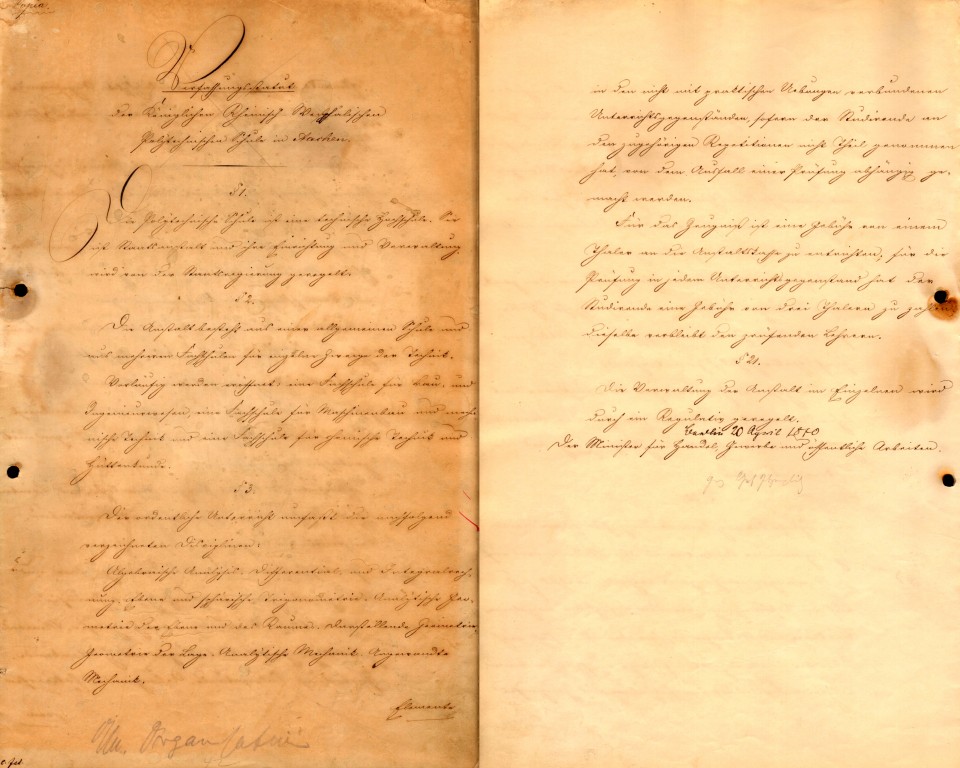 Copia.
Verfassungsstatut
der Königlichen Rheinisch-Westphälischen
Polytechnischen Schule in Aachen.
§ 1.
Die Polytechnische Schule ist eine technische Hochschule. Sie
ist Staatsanstalt und ihre Einrichtung und Verwaltung
wird von der Staatsregierung geregelt.
§ 2.
Die Anstalt besteht aus einer allgemeinen Schule und
aus mehreren Fachschulen für einzelne Zweige der Technik.
Vorläufig werden eröffnet: eine Fachschule für Bau- und
Ingenieurwesen, eine Fachschule für Maschinenbau und mecha-
nische Technik und eine Fachschule für chemische Technik und
Hüttenkunde.
§ 3.
Der ordentliche Unterricht umfaßt die nachfolgend
verzeichneten Disciplinen:
Algebraische Analysis. Differential- und Integralrech-
nung. Ebene und sphärische Trigonometrie. Analytische Geo-
metrie der Ebene und des Raums. Darstellende Geometrie.
Geometrie der Lage. Analytische Mechanik. Angewandte
Mechanik.
Elemente
Organisation
in den nicht mit praktischen Uebungen verbundenen
Unterrichtsgegenständen, sofern der Studirende an
den zugehörigen Repetitionen nicht Theil genommen
hat, von dem Ausfall einer Prüfung abhängig ge-
macht werden.
Für das Zeugniß ist eine Gebühr von einem
Thaler an die Anstaltskasse zu entrichten, für die
Prüfung in jedem Unterrichtsgegenstand hat der
Studirende eine Gebühr von drei Thalern zu zahlen
dieselbe verbleibt den prüfenden Lehrern.
§ 21.
Die Verwaltung der Anstalt im Einzelnen wird
durch ein Regulativ geregelt.
Berlin 20 April 1870
Der Minister für Handel, Gewerbe und öffentliche Arbeiten.